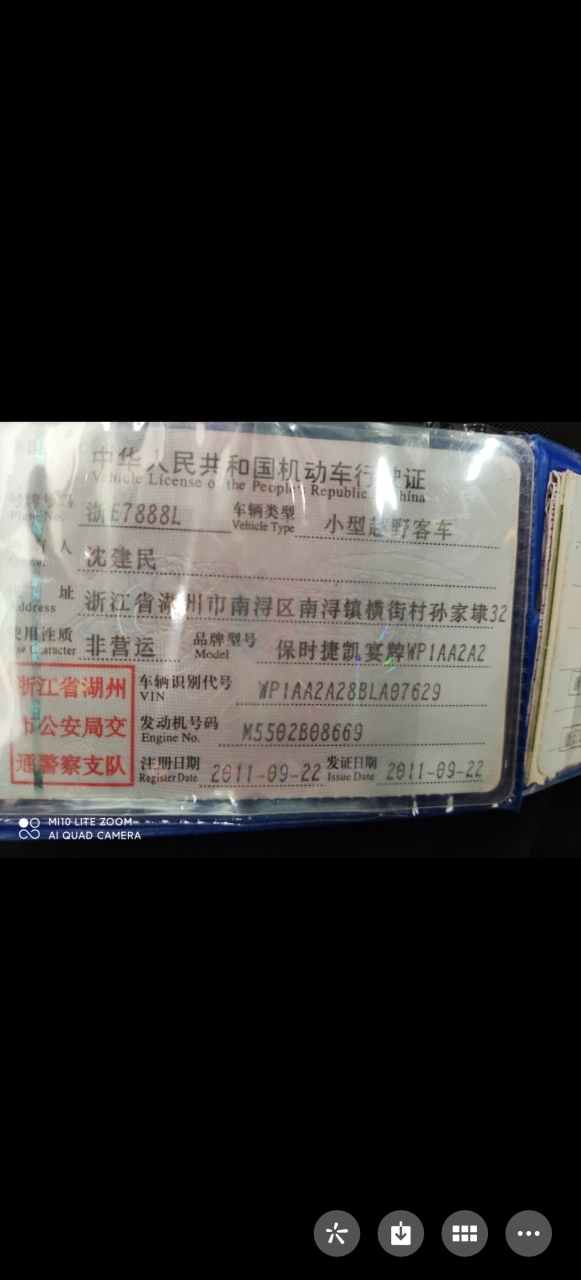 中华人民共和国机动车行驶证
Vehicle License of the People's Republic of China
号牌号码 浙E7888L 车辆类型 小型越野客车
Plate No. Vehicle Type
人 沈建民
Owner
址 浙江省湖州市南浔区南浔镇横街村孙家埭32
Address
使用性质 非营运 品牌型号 保时捷凯宴牌WP1AA2A2
Use Character Model
浙江省湖州 车辆识别代号 WP1AA2A28BLA07629
VIN
市公安局交 发动机号码 M5502B08669
Engine No.
通警察支队 注册日期 2011-09-22 发证日期 2011-09-22
Register Date Issue Date
MI10 LITE ZOOM
AI QUAD CAMERA